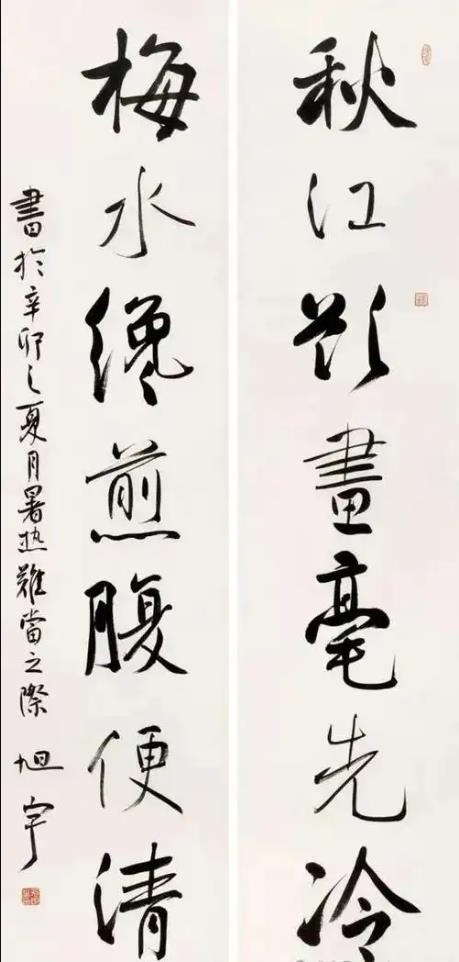 秋江欲畫毫先冷
梅水纔煎腹便清
書於辛卯之夏月暑热難當之際 旭宇